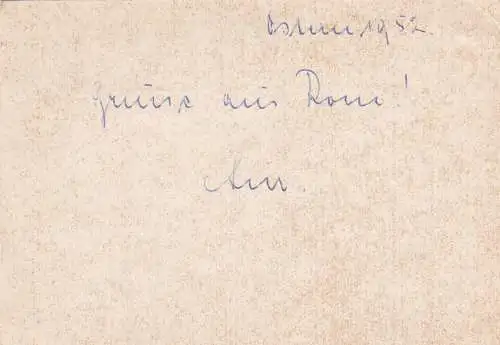 Ostern 1952.
Grüsse aus Rom!